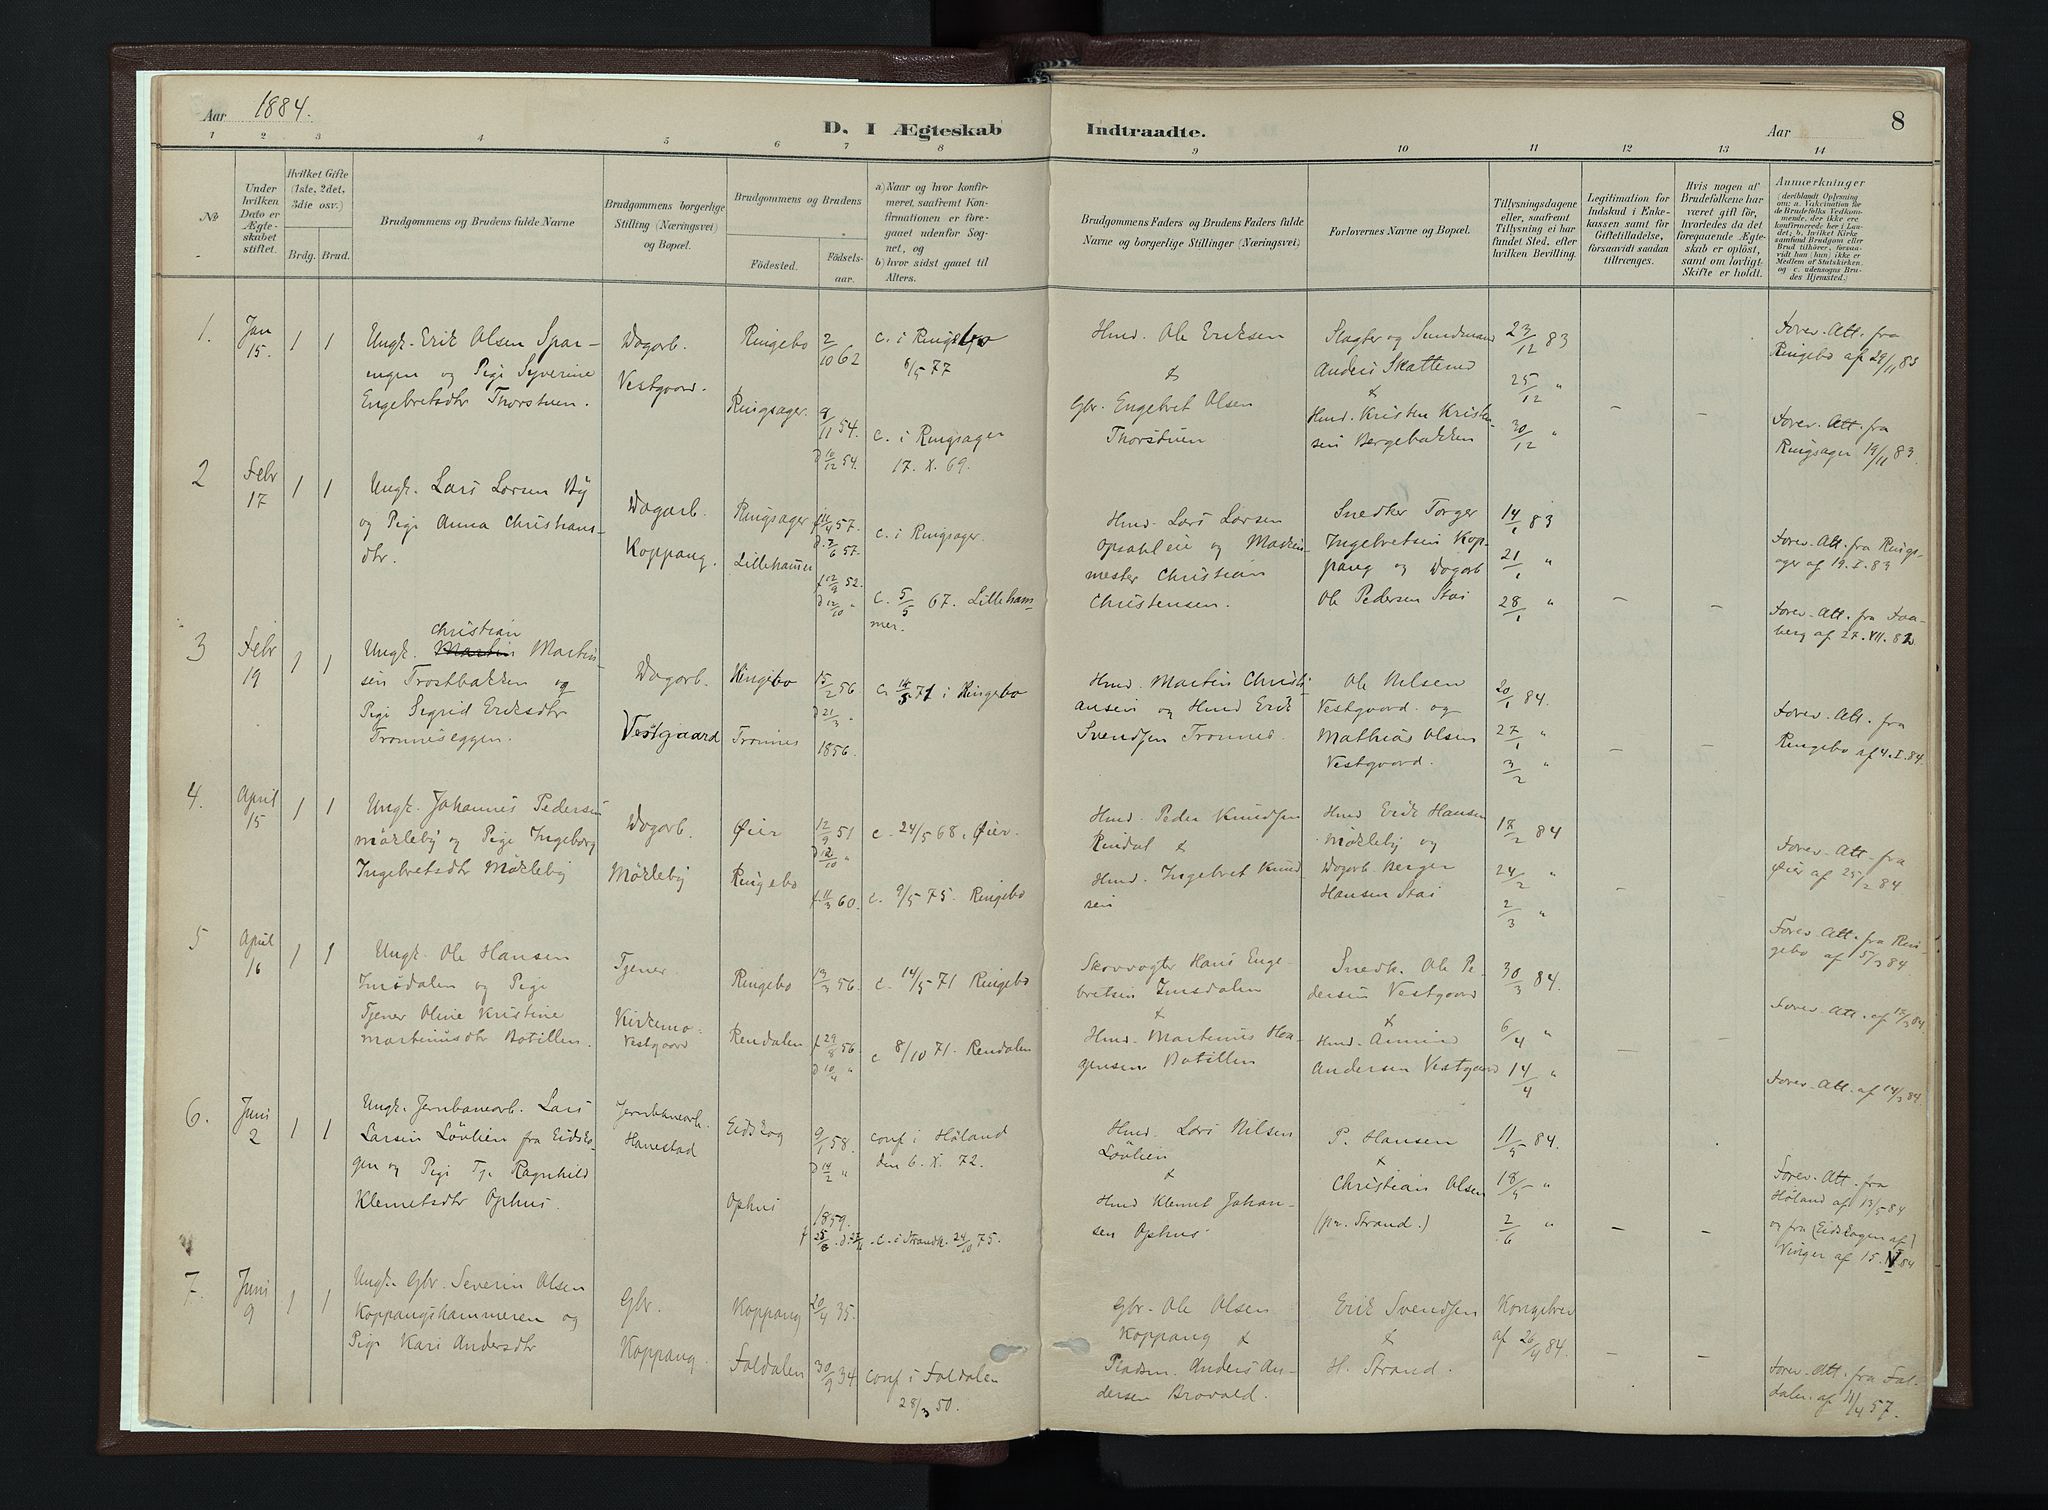 Aar 1884.
D. I Ægteskab Indtraadte.
Aar
8
1 2 3 4 5 6 7 8 9 10 11 12 13 14
No
Under hvilken Dato er Ægteskabet stiftet.
Hvilket Gifte (1ste, 2det, 3die osv.)
Brdg. Brud.
Brudgommens og Brudens fulde Navne
Brudgommens borgerlige Stilling (Næringsvei) og Bopæl.
Brudgommens og Brudens
Fødested.
Fødselsaar.
a) Naar og hvor konfirmeret, saafremt Konfirmationen er foregaaet udenfor Sognet, og
b) hvor sidst gaaet til Alters.
Brudgommens Faders og Brudens Faders fulde Navne og borgerlige Stillinger (Næringsvei)
Forlovernes Navne og Bopæl.
Tillysningsdagene eller, saafremt Tillysning ei har fundet Sted, efter hvilken Bevilling.
Legitimation for Indskud i Enkekassen samt for Giftetilladelse, forsaavidt saadan tiltrænges.
Hvis nogen af Brudefolkene har været gift før, hvorledes da det foregaaende Ægteskab er opløst, samt om lovligt Skifte er holdt.
Anmærkninger
(deriblandt Oplysning om: a. Vakcination for de Brudefolks Vedkommende, der ikke ere konfirmerede her i Landet; b. hvilket Kirkesamfund Brudgom eller Brud tilhører, forsaavidt han (hun) ikke er Medlem af Statskirken, og c. udensogns Brudes Hjemsted.)
1. Jan 15. 1 1
Ungk. Erik Olsen Sparengen og Pige Syverine
Engebretsdtr Thorstuen.
Dagarb.
Vestgaard.
Ringebo 2/10 62
Ringsager. 8/11 54.
d 10/12 54.
c. i Ringebo
6/5 77
c. i Ringsager
17. X. 69.
Hmd. Ole Eriksen
&
Gbr. Engebret Olsen
Thorstuen
Slagter og Sundmand
Anders Skatterud
&
Hmd. Kristen Kristensen Bergebakken
23/12 83
25/12 "
30/12 "
Forev. Att. fra
Ringebo af 29/11 83
Forev. Att. fra
Ringsager 19/11 83.
2 Febr 17 1 1
Ungk. Lars Larsen By
og Pige Anna Christiansdtr.
Dagarb.
Koppang.
Ringsager
Lillehamer
c. i Ringsager.
c. 5/5 67. Lillehammer.
Hmd. Lars Larsen
Opsahleie og
Christian
Christensen.
Snedker Torger
Ingebretsen Koppang og Dagarb
Ole Pedersen Stai
14/1 83
21/1 "
28/1 "
Forev. Att. fra Ringsager af 19. I. 83
Forev. Att. fra Faaberg af 27. VII. 82
3 Febr 19 1 1
Christian
Ungk. Martin Martinsen Trostbakken og
Pige Sigrid Eriksdtr
Tronneseggen.
Dagarb.
Vestgaard
Ringebo 15/2 56
d 21/3 "
Tronnes 1856.
c. 14/5 71 i Ringebo
Hmd. Martin Christiansen og Hmd Erik
Svendsen Tronnes.
Ole Nilsen
Vestgaard. og
Mathias Olsen
Vestgaard.
20/1 84.
27/1 "
3/2 "
Forev. Att. fra
Ringebo af 4. I. 84.
4. April 15 1 1
Ungk. Johannes Pedersen
Mørkleby og Pige Ingeborg
Ingebretsdtr Mørkleby
Dagarb.
Mørkleby
Øier 12/9 51
d 12/10 "
Ringebo f. 11/3 60.
c. 24/5 68. Øier.
c. 9/5 75. Ringebo
Hmd. Peder Knudsen
Rindal &
Hmd. Ingebret Knudsen
Hmd Erik Hansen
Mørkleby og
Dagarb Berger
Hansen Stai
17/2 84
24/2 "
2/3 "
Forev. Att. fra
Øier af 25/2 84.
Forev. Att. fra Ringebo af 5/3 84
5 April 16 1 1
Ungk. Ole Hansen
Imsdalen og Pige
Tjener Oline Kristine
Martinusdtr Botillen.
Tjener
Kirkemo
Vestgaard
Ringebo 13/3 56.
Rendalen f 29/8 56
d 10/4 "
c. 14/5 71 Ringebo
c 8/10 71. Rendalen
Skovvogter Hans Engebretsen Imsdalen
&
Hmd. Martinus Haagensen Botillen
Snedk. Ole Pedersen Vestgaard
&
Hmd.
Andersen Vestgaard
30/3 84.
6/4 "
14/4 "
Forev. Att. af 12/3 84
Forev. Att. af 14/3 84.
6. Juni 2 1 1
Ungk. Jernbanearb. Lars
Larsen Løvlien fra Eidskogen og Pige Tj. Ragnhild
Klemetsdtr Ophus.
Jernbanearb.
Hanestad
Eidskog 9/1 58.
d 14/2 "
Ophus 1859.
conf. i Høland
den 6. X. 72.
c. i Strandk. 24/10 75.
Hmd. Lars Nilsen
Løvlien
&
Hmd Klemet Johansen Ophus.
P. Hansen
&
Christian Olsen
(pr. Strand.)
11/5 84.
18/5 "
2/6 "
Forev. Att. fra
Høland af 13/5 84
og fra (Eidskogen af)
Vinger af 15. V. 84
7. Juni 9 1 1
Ungk. Gbr. Severin Olsen
Koppangshammeren og
Pige Kari Andersdtr
Gbr.
Koppang.
Koppang 20/4 35.
Foldalen 30/9 34
conf i Foldalen
28/3 50.
Gbr. Ole Olsen
Koppang &
Pladsm. Anders Andersen Brovold.
Erik Svendsen
&
H. Strand.
Kongebrev
af 26/4 84.
Forev. Att. fra Foldalen af 11/4 57.